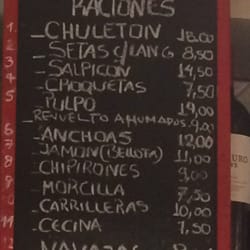 RACIONES
1. _CHULETON 18.00
2 _SETAS c/LANG 8,50
3 _SALPICON 14,50
4 _CROQUETAS 7,50
5 _PULPO 19,00
6 _REVUELTO AHUMADOS 9.00
7 _ANCHOAS 12,00
8 _JAMON (BELLOTA) 11,00
9 _CHIPIRONES 9,00
10 _MORCILLA 7,50
11 _CARRILLERAS 10,00
_CECINA 7,50
NAVAJAS